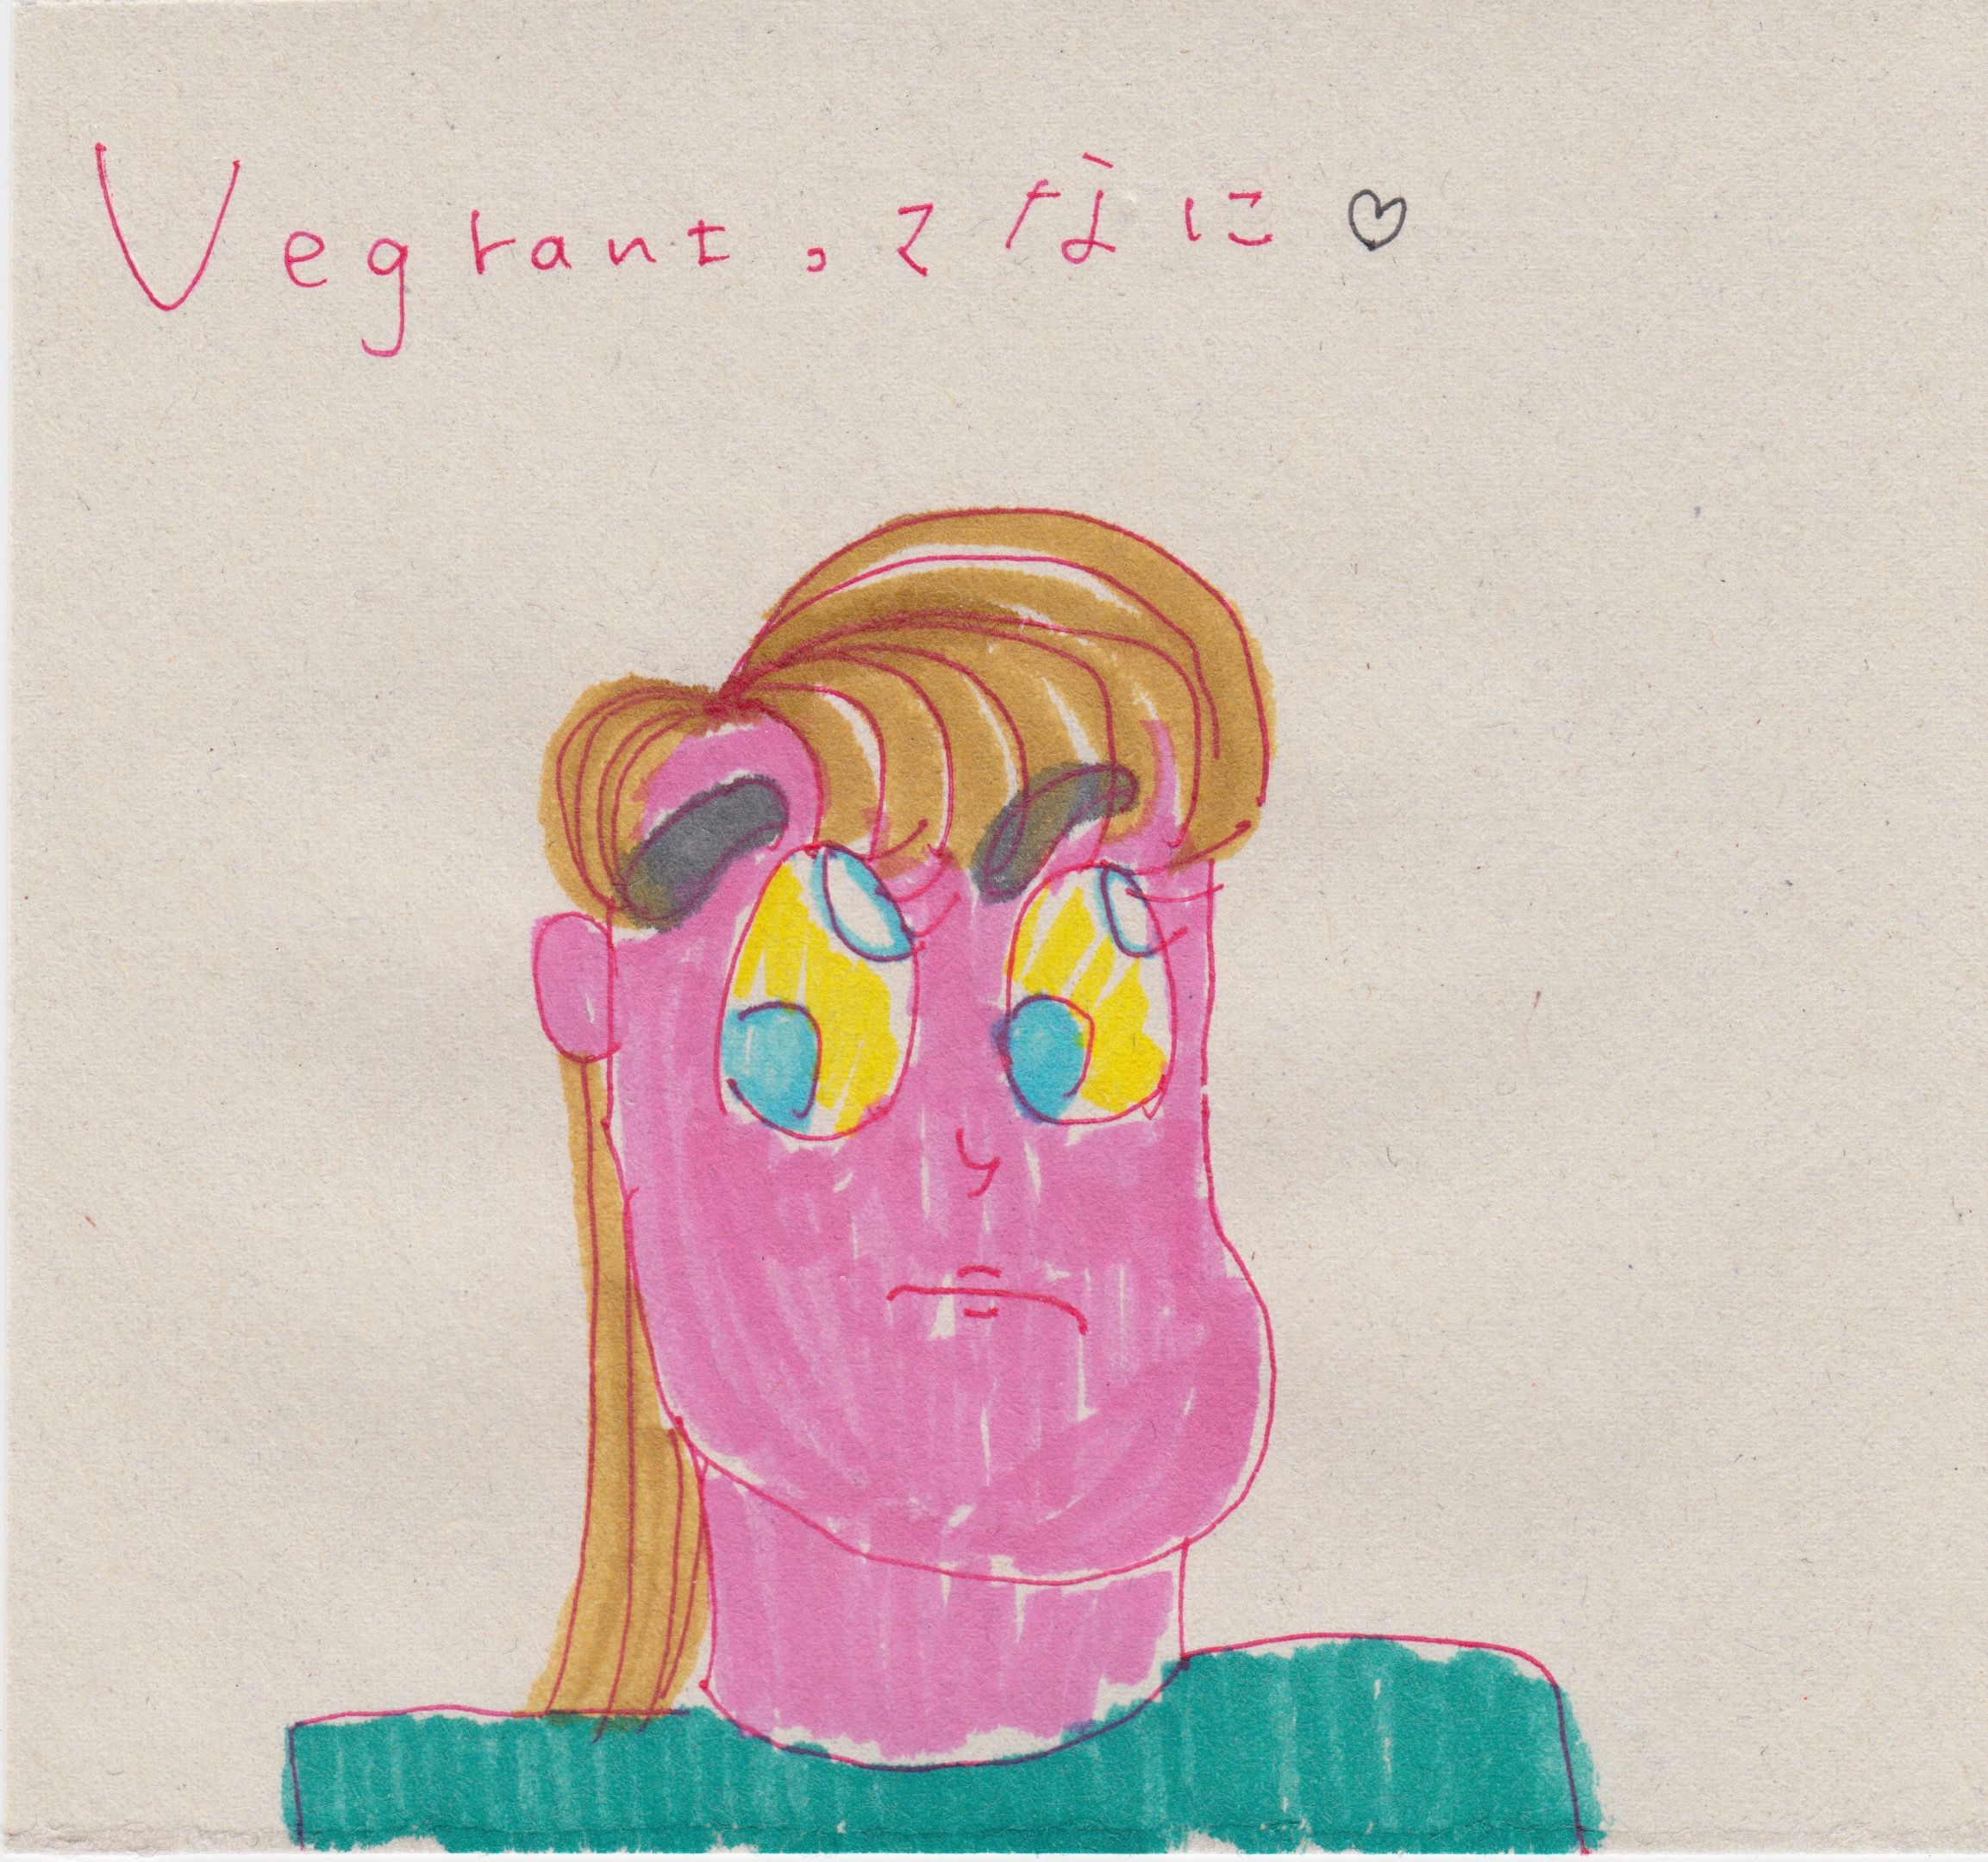 Vegrantってなに♡